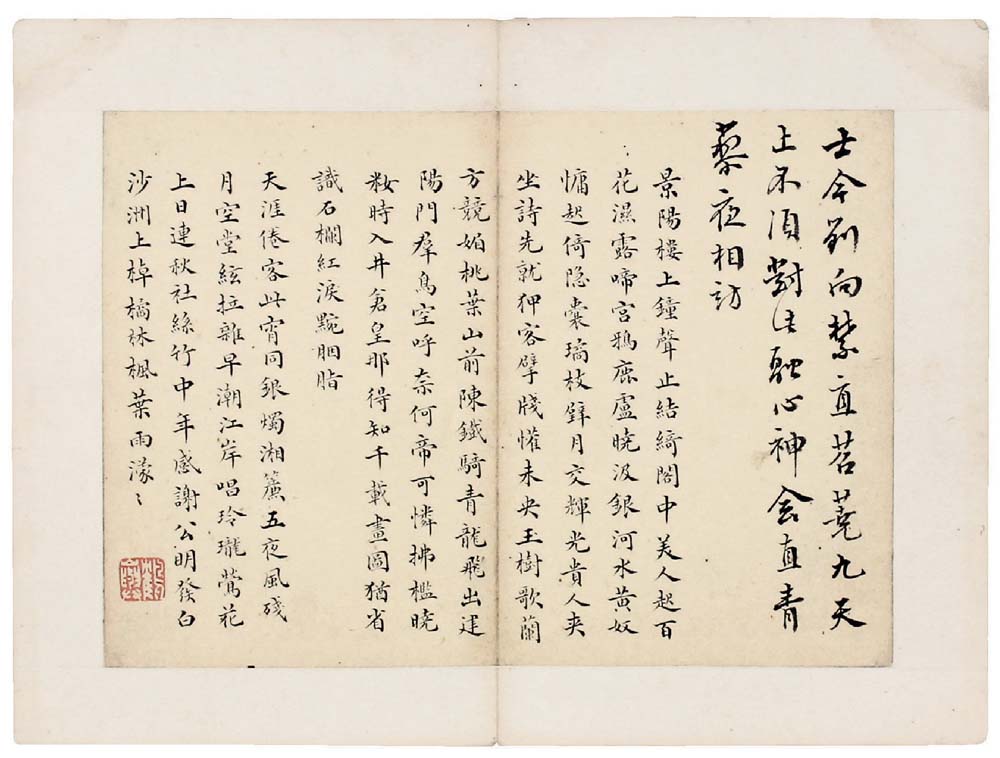 士今列向禁直若蒐九天
上不須對法融心神會直青
藜夜相訪
景陽樓上鐘聲止結綺閣中美人起百
花濕露啼宮鴉鹿盧曉汲銀河水黃奴
慵起倚隱囊璚枝璧月交輝光貴人夾
坐詩先就狎客擘牋懽未央玉樹歌蘭
方競媚桃葉山前陳鐵騎青龍飛出建
陽門羣鳥空呼奈何帝可憐拂檻曉
妝時入井倉皇那得知千載畫圖猶省
識石欄紅淚黦胭脂
天涯倦客此宵同銀燭湘簾五夜風殘
月空堂絃拉雜早潮江岸唱玲瓏鶯花
上日連秋社絲竹中年感謝公明發白
沙洲上棹橘林楓葉雨濛〻